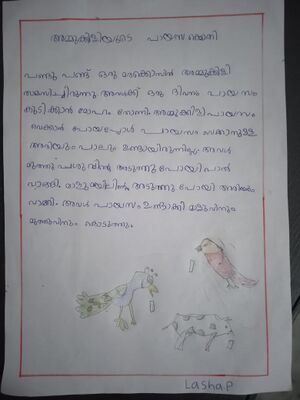 അമ്മുക്കിളിയുടെ പായസക്കൊതി
പണ്ടു പണ്ട് ഒരു മരക്കൊമ്പിൽ അമ്മുക്കിളി
താമസിച്ചിരുന്നു അവൾക്ക് ഒരു ദിവസം പായസം
കുടിക്കാൻ മോഹം തോന്നി. അമ്മുക്കിളി പായസം
വെക്കാൻ പോയപ്പോൾ പായസം വെക്കാനുള്ള
അരിയും പാലും ഉണ്ടായിരുന്നില്ല. അവൾ
മുത്തു പശുവിന്റെ അടുത്തു പോയി പാൽ
വാങ്ങി. മയിലിന്റെ അടുത്തു പോയി അരിയും
വാങ്ങി. അവൾ പായസം ഉണ്ടാക്കി മയിലിനും
മുത്തുവിനും കൊടുത്തു.
Lasha.P